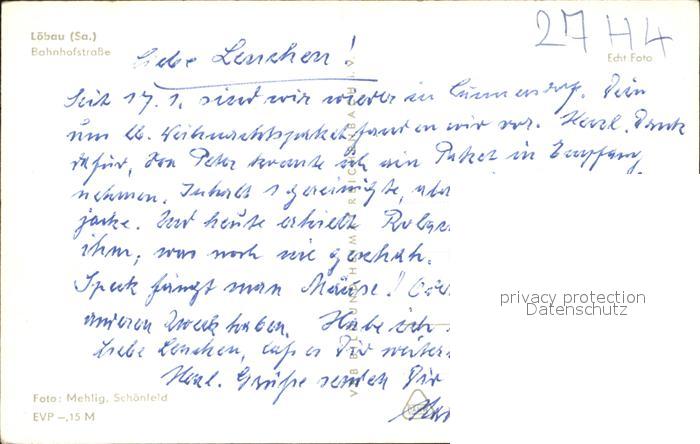 Löbau (Sa.)
Bahnhofstraße
27 H4
Echt Foto
Liebe Lenchen!
Seit 17. 1. sind wir wieder in Cunnersdorf. Dein
und lb. Weihnachtspaket fanden wir vor. Herzl. Dank
dafür, von Peter konnte ich ein Paket in Empfang
nehmen. Inhalt 1 gereinigte, aber
jacke. Und heute erhielt
ihm, was noch nie geschah.
Speck fängt man Mäuse! Oder
anderen Zweck haben. Habe ich
Liebe Lenchen, laß es Dir weiter
Herzl. Grüße senden Dir
privacy protection
Datenschutz
Foto: Mehlig, Schönfeld
EVP –,15 M